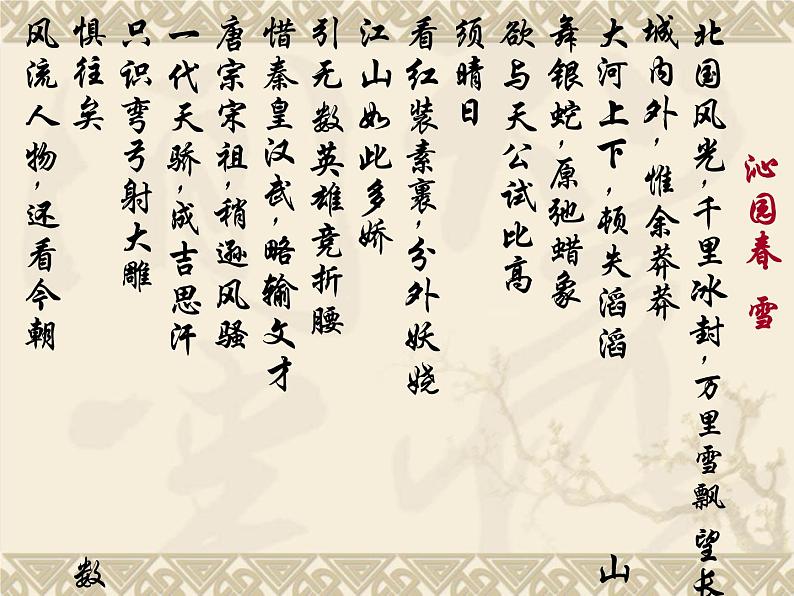 沁园春 雪
北国风光,千里冰封,万里雪飘 望长
城内外,惟余莽莽
大河上下,顿失滔滔 山
舞银蛇,原弛蜡象
欲与天公试比高
须晴日
看红装素裹,分外妖娆
江山如此多娇
引无数英雄竞折腰
惜秦皇汉武,略输文才
唐宗宋祖,稍逊风骚
一代天骄,成吉思汗
只识弯弓射大雕
惧往矣 数
风流人物,还看今朝